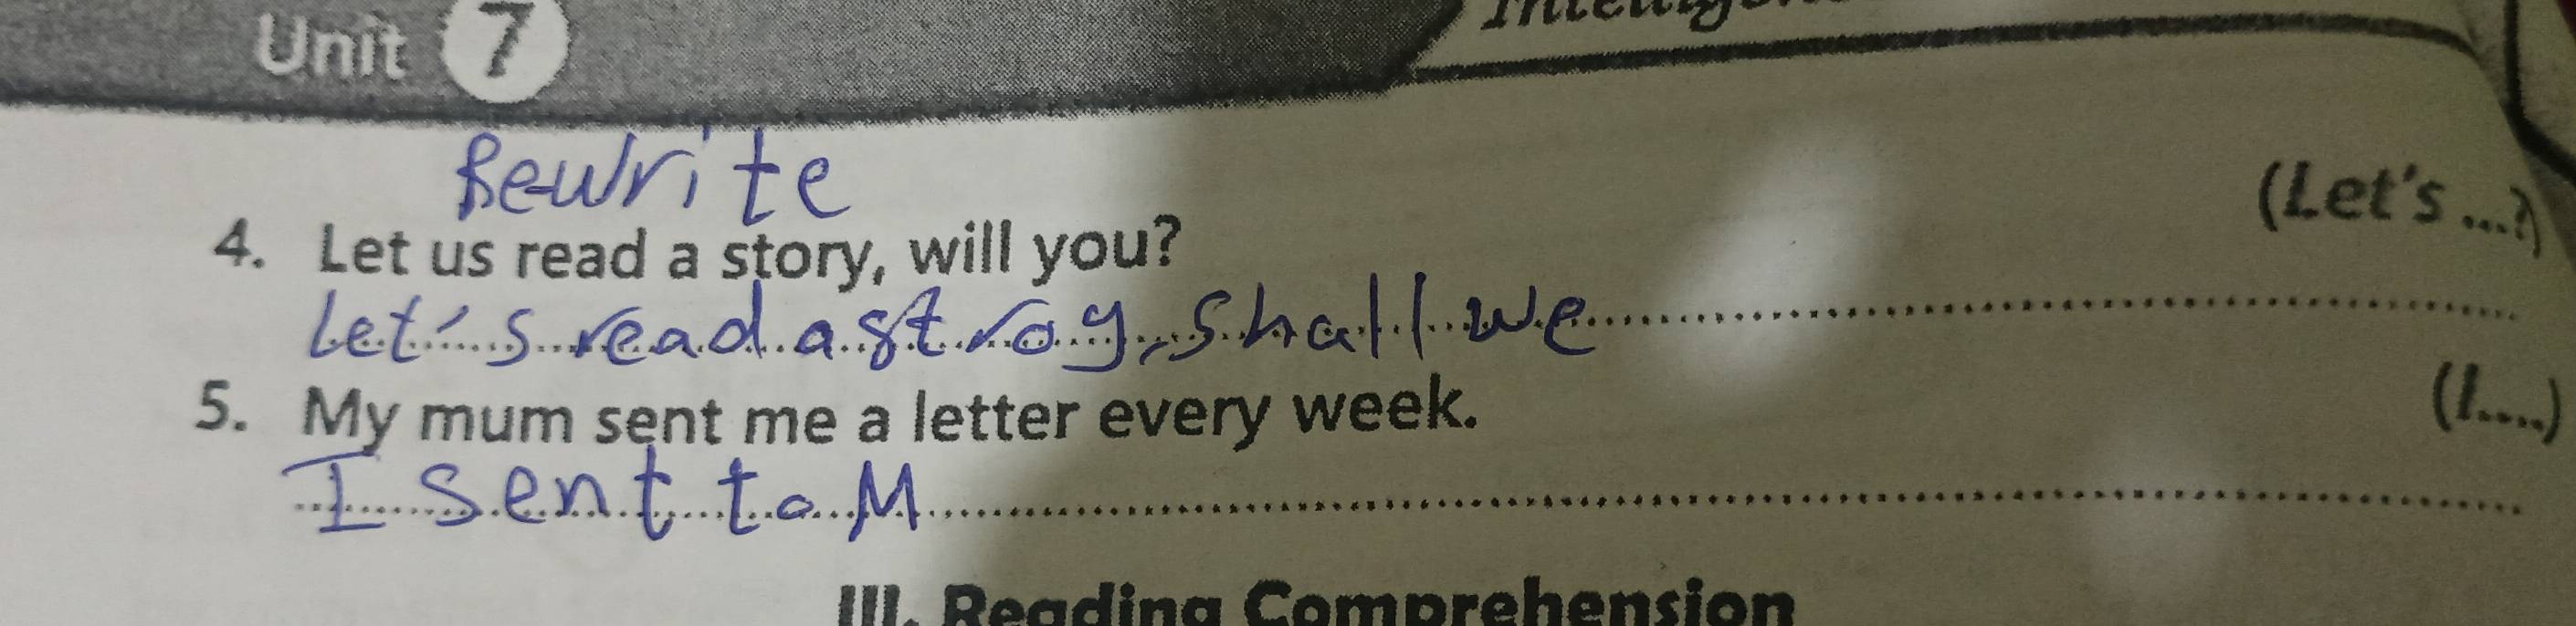 Unit 7
Rewrite
4. Let us read a story, will you? (Let's ...?)
Let's read a stroy, shall we
5. My mum sent me a letter every week. (I....)
I sent to M
III. Reading Comprehension